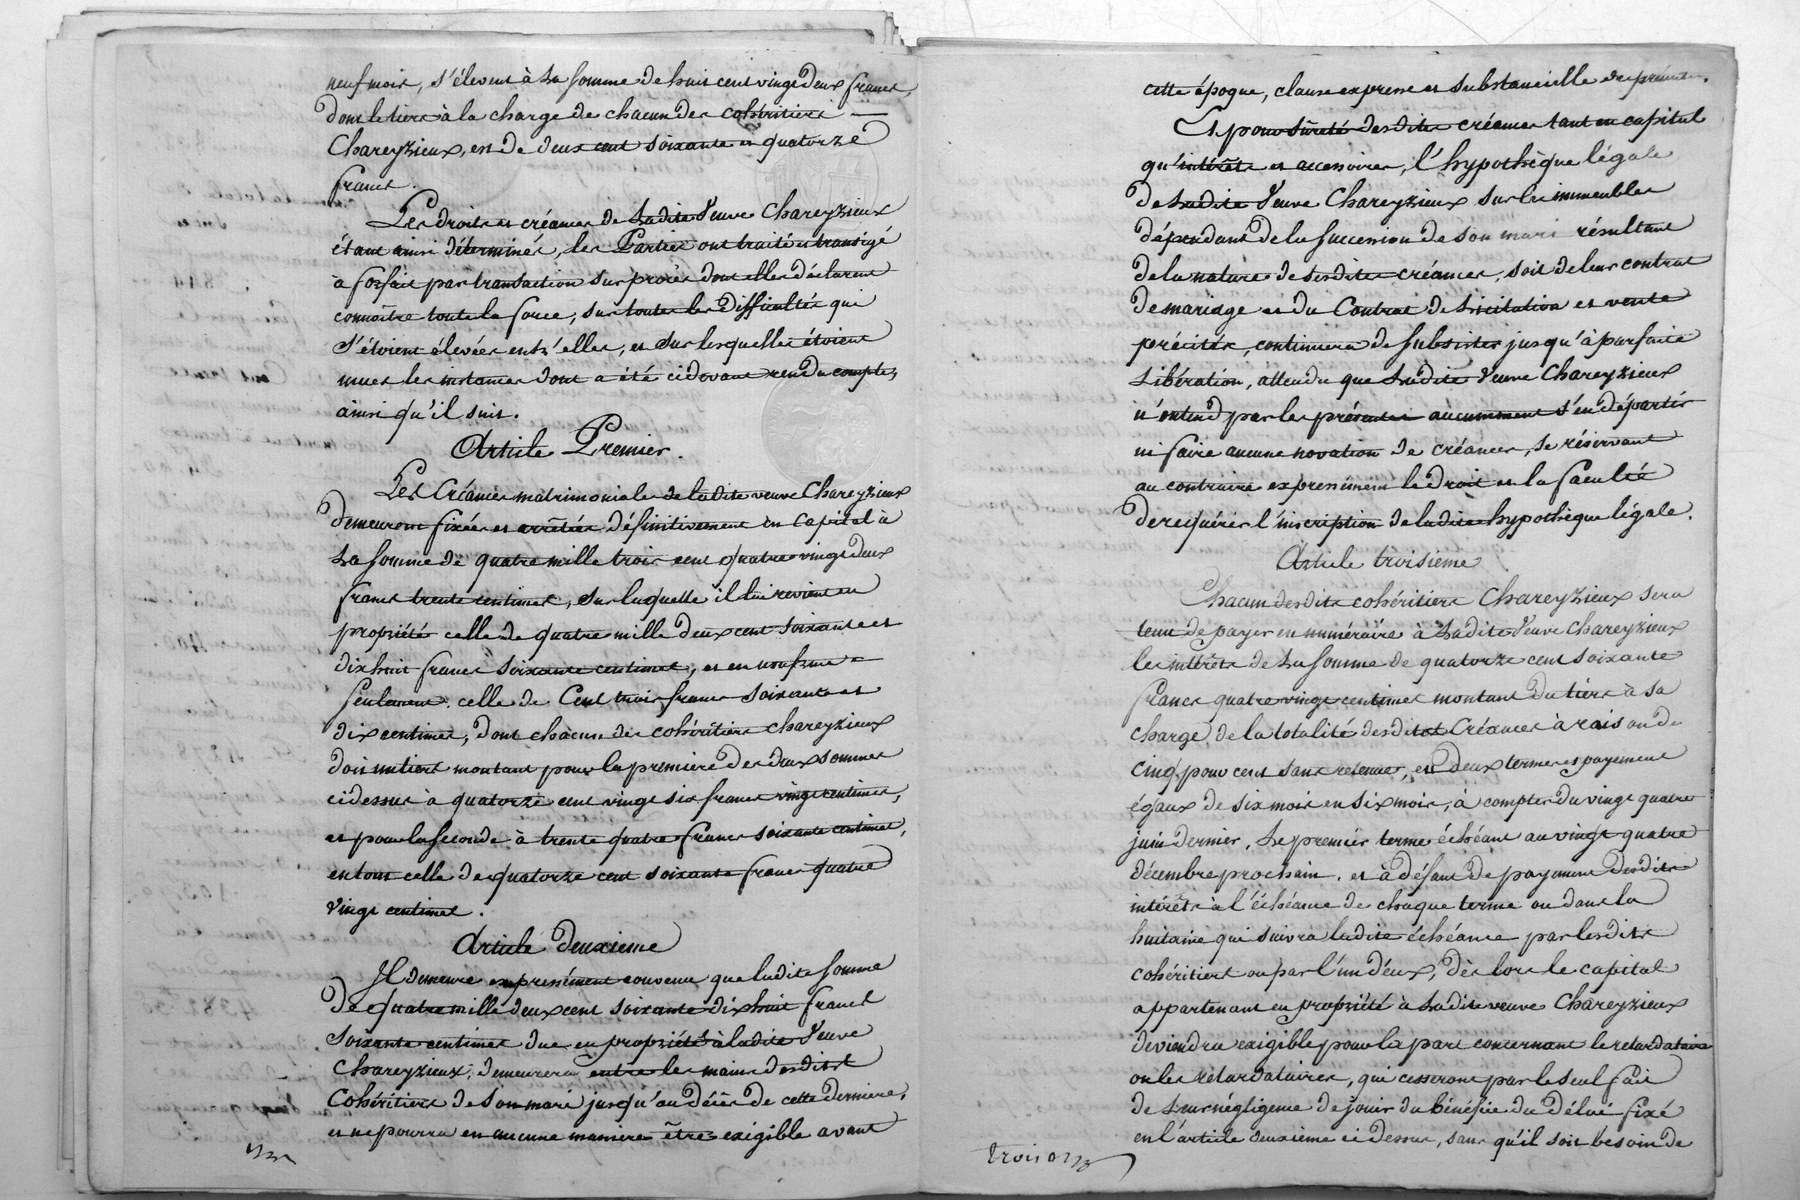 neuf mois, s'élevent à la somme de huit cent vingt deux francs,
dont le tiers à la charge de chacun des cohéritiers —
Chareyzieux, est de deux cent soixante et quatorze
francs.
Les droits et créances de ladite veuve Chareyzieux
étant ainsi déterminés, les Parties ont traité et transigé
à forfait par transaction sur procès dont elles déclarent
connoître toute la force, sur toutes les difficultés qui
s'étoient élevées entr'elles, et sur lesquelles étoient
mues les instances dont a été cidevant rendu compte,
ainsi qu'il suit.
Article Premier.
Les Créances matrimoniales de ladite veuve Chareyzieux
demeurent fixées et arrêtées définitivement en capital à
la somme de quatre mille trois cent quatre vingt deux
francs trente centimes, sur laquelle il lui revient en
propriété celle de quatre mille deux cent soixante et
dix huit francs soixante centimes, et en
seulement celle de Cent trois francs soixante et
dix centimes, dont chacun des cohéritiers Chareyzieux
doit un tiers montant pour la premiere des deux sommes
cidessus à quatorze cent vingt six francs vingt centimes,
et pour la seconde à trente quatre francs soixante centimes,
en tout celle de quatorze cent soixante francs quatre
vingt centimes.
Article deuxieme
Il demeure expressément convenu que ladite somme
de quatre mille deux cent soixante dix huit francs
soixante centimes due en propriété à ladite veuve
Chareyzieux, demeurera entre les mains desdits
Cohéritiers de son mari jusqu'au décès de cette derniere,
et ne pourra en aucune maniere être exigible avant
cette époque, clause expresse et substancielle
Et pour sûreté desdites créances tant en capital
qu'intérêts et accessoires, l'hypothèque légale
de ladite veuve Chareyzieux sur les immeubles
dépendants de la succession de son mari résultant
de la nature desdites créances, soit de leur contrat
de mariage et du Contrat de Licitation et vente
précités, continuera de subsister jusqu'à parfaite
Libération, attendu que ladite veuve Chareyzieux
n'entend par les présentes aucunement s'en départir
ni faire aucune novation de créances, se réservant
au contraire expressément le droit et la faculté
de requérir l'inscription de ladite hypothèque légale.
Article troisieme
Chacun desdits cohéritiers Chareyzieux sera
tenu de payer en numéraire à ladite veuve Chareyzieux
les intérêts de la somme de quatorze cent soixante
francs quatre vingt centimes montant du tiers à sa
charge de la totalité desdites Créances à raison de
cinq pour cent sans retenue, en deux termes et payement
égaux de six mois en six mois, à compter du vingt quatre
juin dernier, le premier terme échéant au vingt quatre
décembre prochain, et à défaut de payement desdits
intérêts à l'échéance de chaque terme ou dans la
huitaine qui suivra ladite échéance par lesdits
cohéritiers ou par l'un d'eux, dès lors le capital
appartenant en propriété à ladite veuve Chareyzieux
deviendra exigible pour la part concernant le retardataire
ou les retardataires, qui cesseront par le seul fait
de leur négligence de jouir du bénéfice du délai fixé
en l'article deuxieme ci dessus, sans qu'il soit besoin de